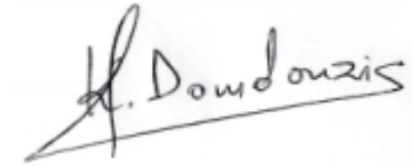 K. Domdouzis